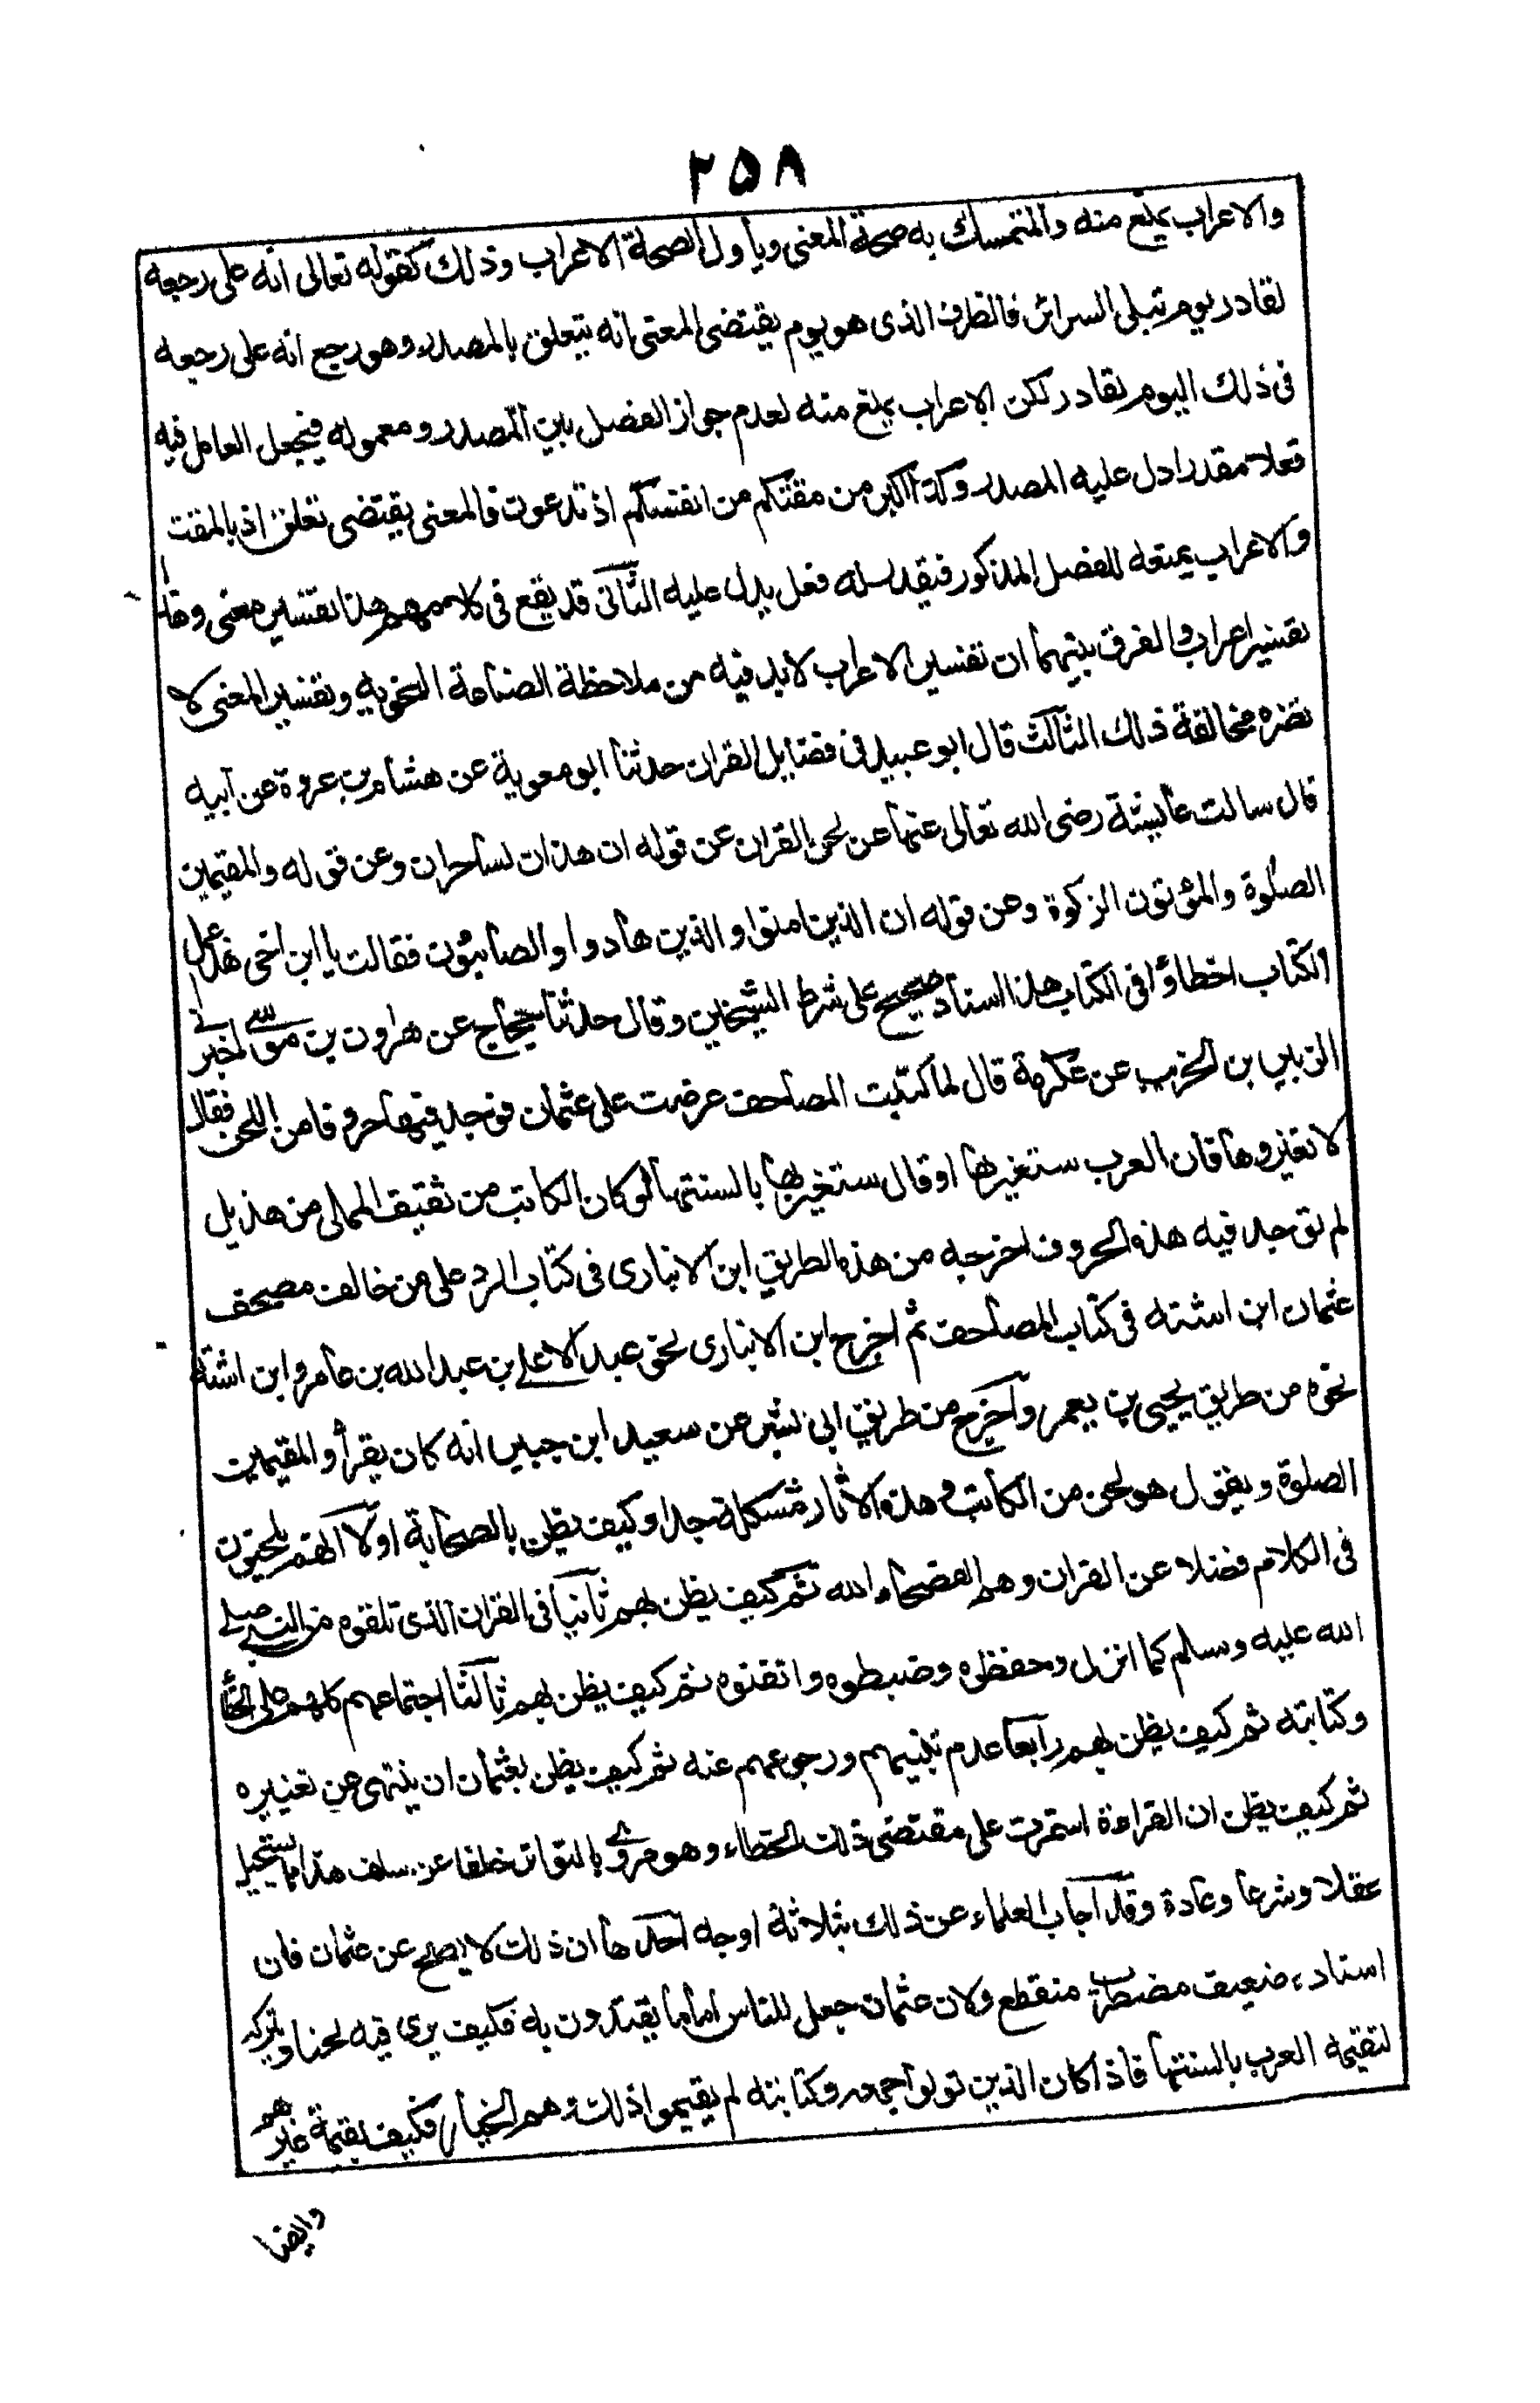 ٢٥٨
والاعراب يمنع منه والمتمسك به صحة المعنى ويأول لصحة الاعراب وذلك كقوله تعالى انه على رجعه
لقادر يوم تبلى السرائر فالظرف الذى هو يوم يقتضى المعنى انه يتعلق بالمصدر وهو رجع انه على رجعه
فى ذلك اليوم لقادر لكن الاعراب يمنع منه لعدم جواز الفصل بين المصدر ومعموله فيجعل العامل فيه
فعلا مقدرا دل عليه المصدر وكذا اكبر من مقتكم من انفسكم اذ تدعون فالمعنى يقتضى تعلق اذ بالمقت
والاعراب يمنعه للفصل المذكور فيقدر له فعل يدل عليه الثانى قد يقع فى كلامهم هذا تفسير معنى وهذا
تفسير اعراب والفرق بينهما ان تفسير الاعراب لابد فيه من ملاحظة الصناعة النحوية وتفسير المعنى لا
تضره مخالفة ذلك الثالث قال ابو عبيد فى فضايل القران حدثنا ابو معوية عن هشام بن عروة عن ابيه
قال سالت عايشة رضى الله تعالى عنها عن لحن القران عن قوله ان هذان لساحران وعن قوله والمقيمين
الصلوة والمؤتون الزكوة وعن قوله ان الذين امنوا والذين هادوا والصابئون فقالت يا ابن اخى هذا عمل
الكتاب اخطاؤا فى الكتاب هذا اسناد صحيح على شرط الشيخين وقال حدثنا حجاج عن هرون بن موسى اخبرنى
الزبير بن الخريت عن عكرمة قال لما كتبت المصاحف عرضت على عثمان فوجد فيها حروفا من اللحن فقال
لا تغيروها فان العرب ستغيرها او قال ستغيربها بالسنتها لو كان الكاتب من ثقيف والمملى من هذيل
لم توجد فيه هذه الحروف اخرجه من هذه الطريق ابن الانبارى فى كتاب الرد على من خالف مصحف
عثمان ابن اشته فى كتاب المصاحف ثم اخرج ابن الانبارى نحوه عبد الاعلى بن عبد الله بن عامر وابن اشته
نحوه من طريق يحيى بن يعمر واخرج من طريق ابى بشر عن سعيد ابن جبير انه كان يقرأ والمقيمين
الصلوة ويقول هو لحن من الكاتب وهذه الاثار مشكلة جدا وكيف يظن بالصحابة اولا انهم يلحنون
فى الكلام فضلا عن القران وهم الفصحاء الله ثم كيف يظن بهم ثانيا فى القران الذى تلقوه من النبى صلى
الله عليه وسلم كما انزل وحفظوه وضبطوه واتقنوه ثم كيف يظن بهم ثالثا اجتماعهم كلهم على الخطأ
وكتابته ثم كيف يظن بهم رابعا عدم تنبيههم ورجوعهم عنه ثم كيف يظن بعثمان ان ينتهى عن تغييره
ثم كيف يظن ان القراءة استمرت على مقتضى ذلك الخطاء وهو مروى بالتواتر خلفا عن سلف هذا مما يستحيل
عقلا وشرعا وعادة وقد اجاب العلماء عن ذلك بثلاثة اوجه احدها ان ذلك لا يصح عن عثمان فان
اسناده ضعيف مضطرب منقطع ولان عثمان جعل للناس اماما يقتدون به فكيف يرى فيه لحنا ويتركه
لتقيمه العرب بالسنتها فاذا كان الذين تولوا جمعه وكتابته لم يقيموا ذلك وهم الخيار فكيف يقيمه غيرهم
وايضا